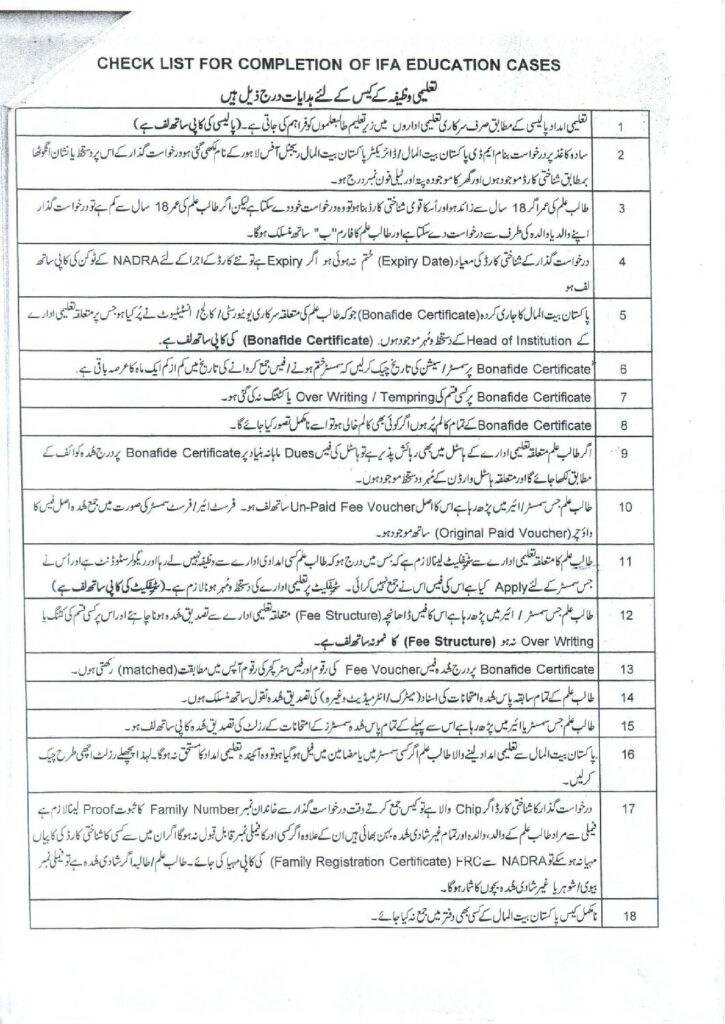 CHECK LIST FOR COMPLETION OF IFA EDUCATION CASES
تعلیمی وظیفہ کے کیس کے لئے ہدایات درج ذیل ہیں
1 تعلیمی امداد پالیسی کے مطابق صرف سرکاری تعلیمی اداروں میں زیر تعلیم طالبعلموں کو فراہم کی جاتی ہے۔ (پالیسی کی کاپی ساتھ لف ہے)
2 سادہ کاغذ پر درخواست بنام ایم ڈی پاکستان بیت المال/ڈائریکٹر پاکستان بیت المال ریجنل آفس لاہور کے نام لکھی گئی ہو درخواست گذار کے اس پر دستخط یا نشان انگوٹھا
بمطابق شناختی کارڈ موجود ہوں اور گھر کا موجودہ پتہ اور ٹیلی فون نمبر درج ہو۔
3 طالب علم کی عمر اگر 18 سال سے زائد ہو اور اُسکا قومی شناختی کارڈ بنا ہو تو وہ درخواست خود دے سکتا ہے لیکن اگر طالب علم کی عمر 18 سال سے کم ہے تو درخواست گذار
اپنے والد یا والدہ کی طرف سے درخواست دے سکتا ہے اور طالب علم کا فارم "ب" ساتھ منسلک ہوگا۔
4 درخواست گذار کے شناختی کارڈ کی معیاد (Expiry Date) ختم نہ ہوئی ہو اگر Expiry ہے تو نئے کارڈ کے اجرا کے لئے NADRA کے ٹوکن کی کاپی ساتھ
لف ہو
5 پاکستان بیت المال کا جاری کردہ (Bonafide Certificate) جو کہ طالب علم کی متعلقہ سرکاری یونیورسٹی/ کالج/ انسٹیٹیوٹ نے پُر کیا ہو جس پر متعلقہ تعلیمی ادارے
کے Head of Institution کے دستخط و مُہر موجود ہوں۔ (Bonafide Certificate) کی کاپی ساتھ لف ہے۔
6 Bonafide Certificate پر سمسٹر/ سیشن کی تاریخ چیک کر لیں کہ سمسٹر ختم ہونے/ فیس جمع کروانے کی تاریخ میں کم از کم ایک ماہ کا عرصہ باقی ہے۔
7 Bonafide Certificate پر کسی قسم کی Over Writing / Tempring یا کٹنگ نہ کی گئی ہو۔
8 Bonafide Certificate کے تمام کالم پُر ہوں اگر کوئی بھی کالم خالی ہو تو اسے نامکمل تصور کیا جائے گا۔
9 اگر طالب علم متعلقہ تعلیمی ادارے کے ہاسٹل میں بھی رہائش پذیر ہے تو ہاسٹل کی فیس Dues ماہانہ بنیاد پر Bonafide Certificate پر درج شدہ کوائف کے
مطابق لکھا جائے گا اور متعلقہ ہاسٹل وارڈن کے مُہر و دستخط موجود ہوں۔
10 طالب علم جس سمسٹر/ ائیر میں پڑھ رہا ہے اس کا اصل Un-Paid Fee Voucher ساتھ لف ہو۔ فرسٹ ائیر/ فرسٹ سمسٹر کی صورت میں جمع شدہ اصل فیس کا
واؤچر (Original Paid Voucher) ساتھ موجود ہو۔
11 طالب علم کا متعلقہ تعلیمی ادارے سے سرٹیفکیٹ لینا لازم ہے کہ جس میں درج ہو کہ طالب علم کسی امدادی ادارے سے وظیفہ نہیں لے رہا اور ریگولر سٹوڈنٹ ہے اور اُس نے
جس سمسٹر کے لئے Apply کیا ہے اس کی فیس اس نے جمع نہیں کرائی۔ سرٹیفکیٹ پر تعلیمی ادارے کی دستخط و مُہر ہونا لازم ہے۔ (سرٹیفکیٹ کی کاپی ساتھ لف ہے)
12 طالب علم جس سمسٹر / ائیر میں پڑھ رہا ہے اس کا فیس ڈھانچہ (Fee Structure) متعلقہ تعلیمی ادارے سے تصدیق شدہ ہونا چاہئے اور اس پر کسی قسم کی کٹنگ یا
Over Writing نہ ہو (Fee Structure) کا نمونہ ساتھ لف ہے۔
13 Bonafide Certificate پر درج شدہ فیس Fee Voucher کی رقوم اور فیس سٹرکچر کی رقوم آپس میں مطابقت (matched) رکھتی ہوں۔
14 طالب علم کے تمام سابقہ پاس شدہ امتحانات کی اسناد (میٹرک/ انٹرمیڈیٹ وغیرہ) کی تصدیق شدہ نقول ساتھ منسلک ہوں۔
15 طالب علم جس سمسٹر یا ائیر میں پڑھ رہا ہے اس سے پہلے کے تمام پاس شدہ سمسٹرز کے امتحانات کے رزلٹ کی تصدیق شدہ کاپی ساتھ لف ہو۔
16 پاکستان بیت المال سے تعلیمی امداد لینے والا طالب علم اگر کسی سمسٹر میں یا مضامین میں فیل ہو گیا ہو تو وہ آئیندہ تعلیمی امداد کا مستحق نہ ہوگا۔ لہذا پچھلے رزلٹ اچھی طرح چیک
کر لیں۔
17 درخواست گذار کا شناختی کارڈ اگر Chip والا ہے تو کیس جمع کرتے وقت درخواست گذار سے خاندان نمبر Family Number کا ثبوت Proof لینا لازم ہے
فیملی سے مراد طالب علم کے والد، والدہ اور تمام غیر شادی شدہ بہن بھائی ہیں ان کے علاوہ اگر کسی اور کا فیملی نمبر قابل قبول نہ ہوگا اگر ان میں سے کسی کا شناختی کارڈ کی کاپیاں
مہیا نہ ہو سکے تو NADRA سے FRC (Family Registration Certificate) کی کاپی مہیا کی جائے۔ طالب علم/ طالبہ اگر شادی شدہ ہے تو فیملی نمبر
بیوی/ شوہر یا غیر شادی شدہ بچوں کا شمار ہوگا۔
18 نامکمل کیس پاکستان بیت المال کے کسی بھی دفتر میں جمع نہ کیا جائے۔